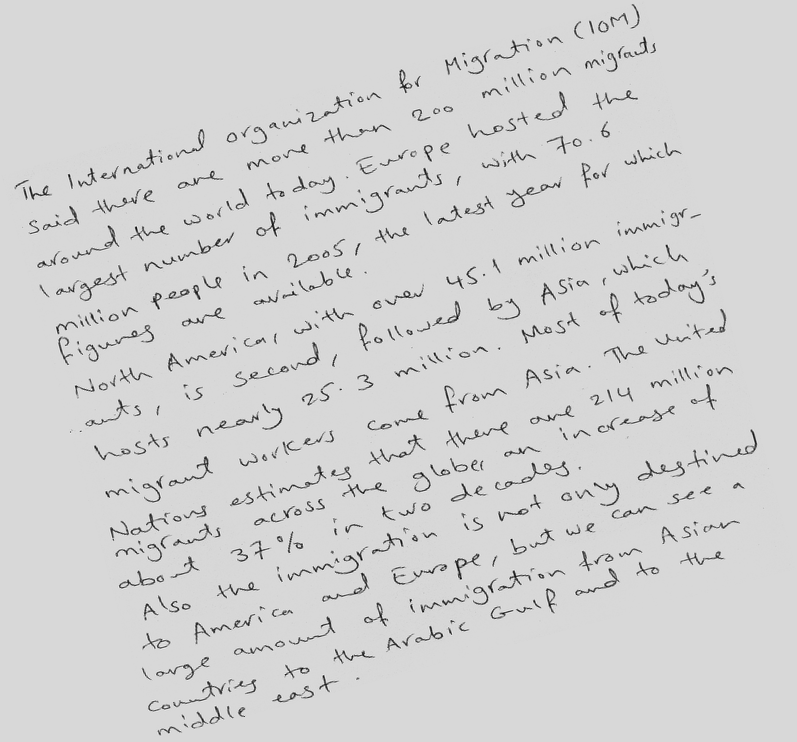 The International organization for Migration (IOM)
said there are more than 200 million migrants
around the world today. Europe hosted the
largest number of immigrants, with 70.6
million people in 2005, the latest year for which
figures are available.
North America, with over 45.1 million immigr-
ants, is second, followed by Asia, which
hosts nearly 25.3 million. Most of today's
migrant workers come from Asia. The United
Nations estimates that there are 214 million
migrants across the globe, an increase of
about 37% in two decades.
Also the immigration is not only destined
to America and Europe, but we can see a
large amount of immigration from Asian
countries to the Arabic Gulf and to the
middle east.